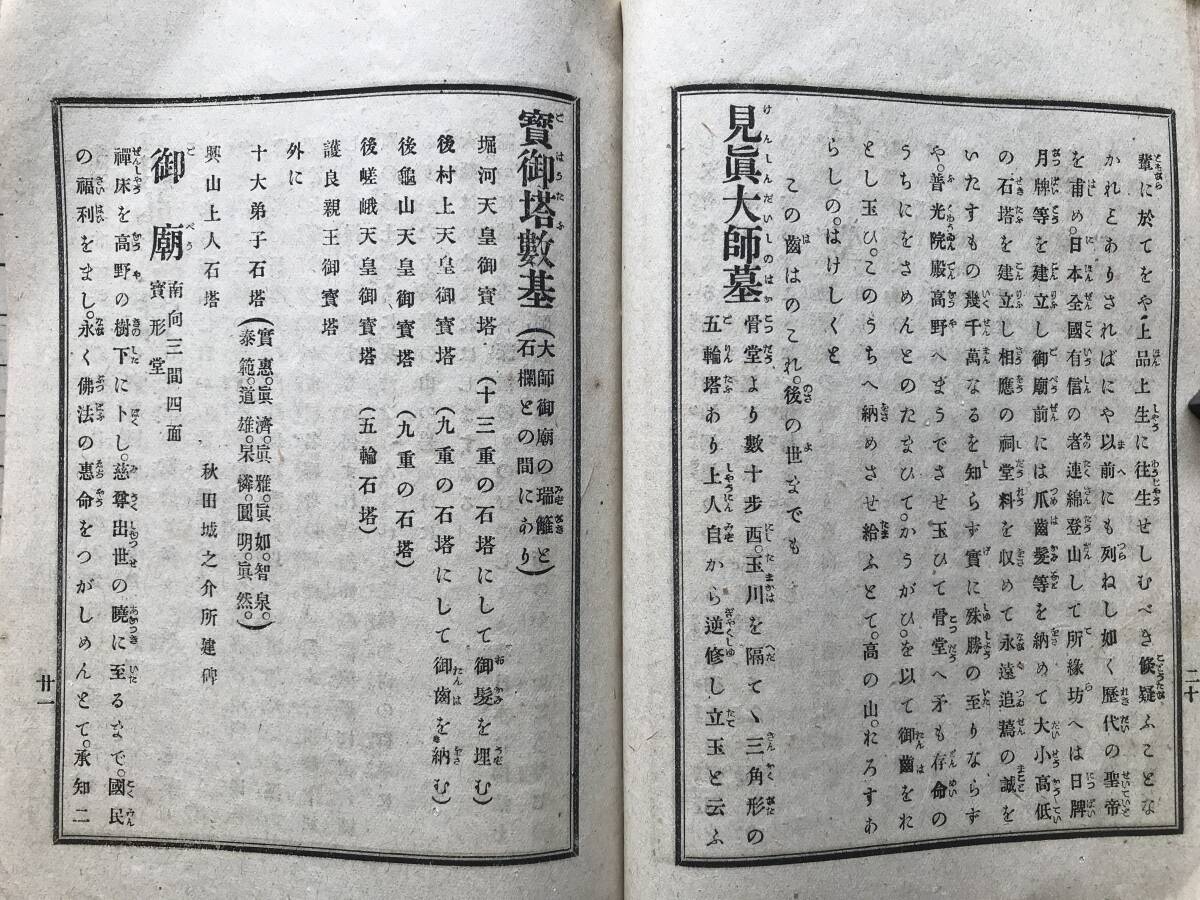 輩に於てをや上品上生に往生せしむべき條疑ふことな
かれとありさればにや以前にも列ねし如く歷代の聖帝
を甫め。日本全國有信の者連綿登山して所緣坊へは日牌
月牌等を建立し御廟前には爪齒髮等を納めて大小高低
の石塔を建立し相應の祠堂料を収めて永遠追薦の誠を
いたすもの幾千萬なるを知らず實に殊勝の至りならず
や。普光院殿高野へまうでさせ玉ひて骨堂へ矛も存命の
うちにをさめんとのたまひて。かうがひ。を以て御齒をれ
とし玉ひ。このうちへ納めさせ給ふとて。高の山。れろすあ
らしの。はけしくと
この齒はのこれ。後の世なでも
見眞大師墓
骨堂より數十步西。玉川を隔てヽ三角形の
五輪塔あり上人自から逆修し立玉と云ふ
二十
寶御塔數基(大師御廟の瑞籬と石欄との間にあり)
堀河天皇御寶塔(十三重の石塔にして御髮を埋む)
後村上天皇御寶塔(九重の石塔にして御齒を納む)
後龜山天皇御寶塔(九重の石塔)
後嵯峨天皇御寶塔(五輪石塔)
護良親王御寶塔
外に
十大弟子石塔(實惠。眞濟。眞雅。眞如。智泉。泰範。道雄。杲憐。圓明。眞然。)
興山上人石塔 秋田城之介所建碑
御廟 南向三間四面 寶形堂
禪床を高野の樹下に卜し。慈尊出世の曉に至るまで。國民
の福利をまし。永く佛法の惠命をつがしめんとて。承知二
廿一